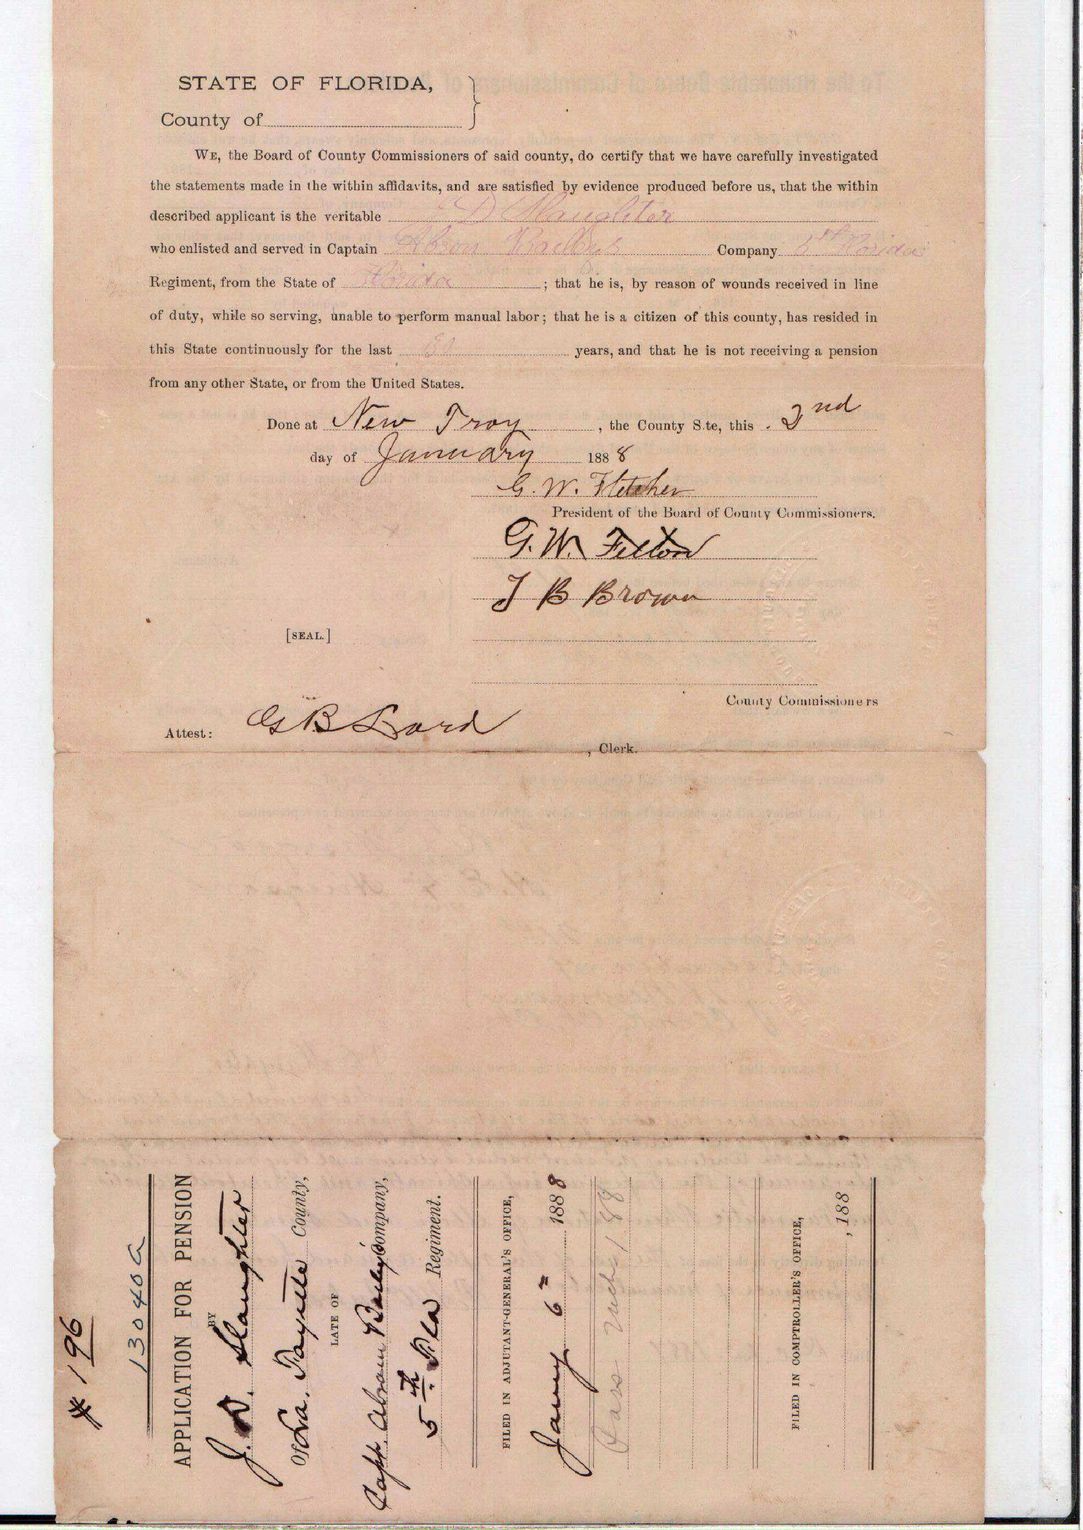 STATE OF FLORIDA, }
County of
WE, the Board of County Commissioners of said county, do certify that we have carefully investigated
the statements made in the within affidavits, and are satisfied by evidence produced before us, that the within
described applicant is the veritable J D Slaughter
who enlisted and served in Captain Abron Baileys Company 5th Florida
Regiment, from the State of Florida ; that he is, by reason of wounds received in line
of duty, while so serving, unable to perform manual labor; that he is a citizen of this county, has resided in
this State continuously for the last years, and that he is not receiving a pension
from any other State, or from the United States.
Done at New Troy , the County S te, this 2nd
day of January 1888
G. W. Fletcher
President of the Board of County Commissioners.
G. W. Felton
T B Brown
[SEAL.]
County Commissioners
Attest: G B Lord
, Clerk.
# 196
13040a
APPLICATION FOR PENSION
BY
J. D. Slaughter
OF La. Fayette County,
LATE OF
Capt. Abram Bailey's Company,
5th Fla Regiment.
FILED IN ADJUTANT-GENERAL'S OFFICE,
Jany 6" 1888
FILED IN COMPTROLLER'S OFFICE,
, 188